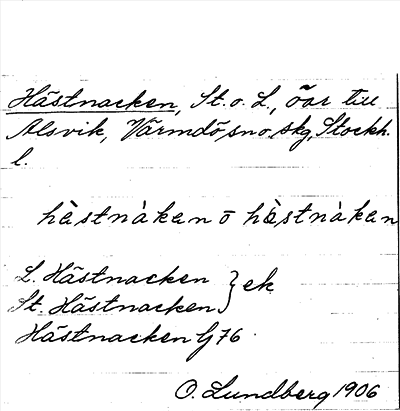 Hästnacken, St. o. L., öar till
Alsvik, Värmdö sno, skg, Stockh.
l.
hàstnàkan o hàstnàkan
L. Hästnacken } ek
St. Hästnacken
Hästnacken G 76.
O. Lundberg 1906